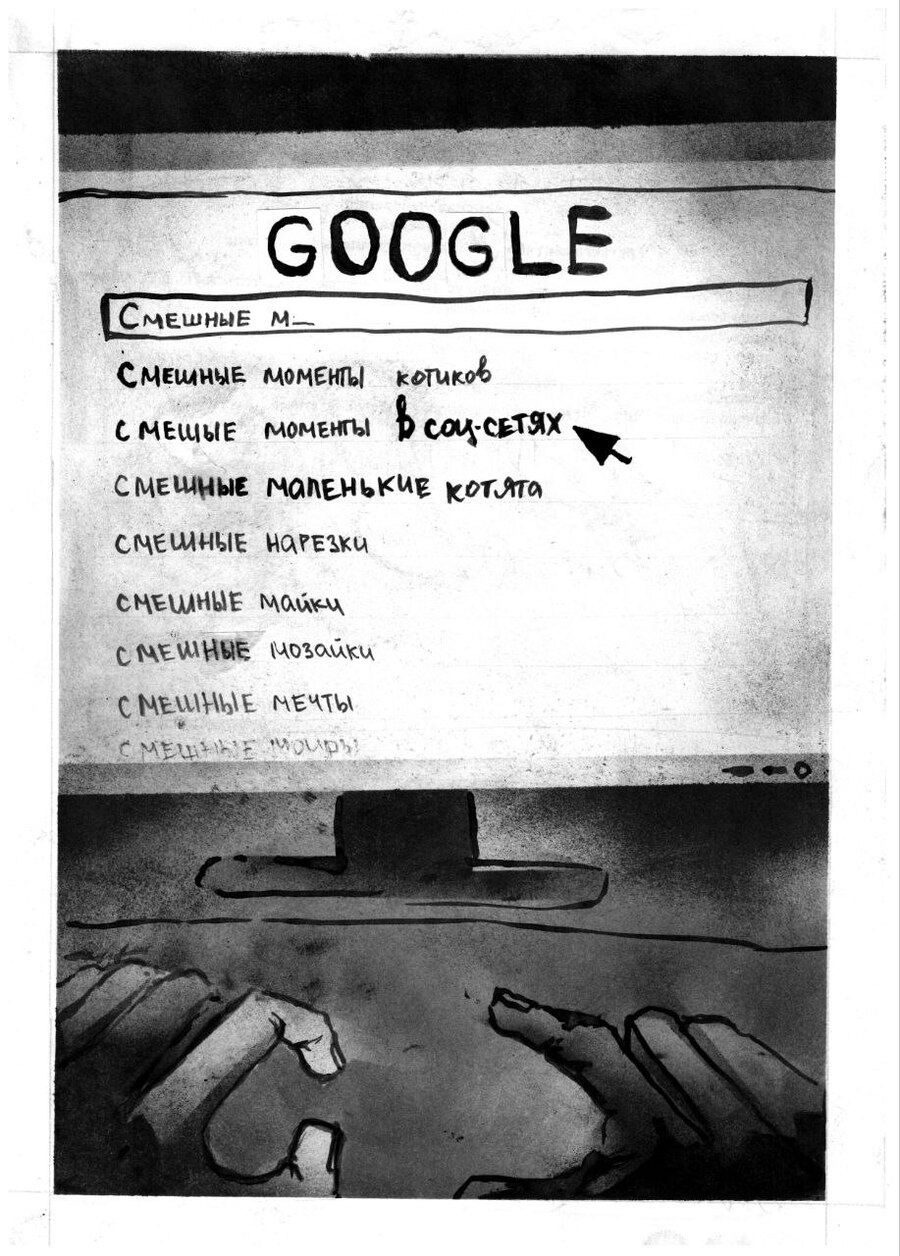 GOOGLE
СМЕШНЫЕ М_
СМЕШНЫЕ МОМЕНТЫ КОТИКОВ
СМЕЩЫЕ МОМЕНТЫ В СОЦ-СЕТЯХ
СМЕШНЫЕ МАЛЕНЬКИЕ КОТЯТА
СМЕШНЫЕ НАРЕЗКИ
СМЕШНЫЕ МАЙКИ
СМЕШНЫЕ МОЗАЙКИ
СМЕШНЫЕ МЕЧТЫ
СМЕШНЫЕ